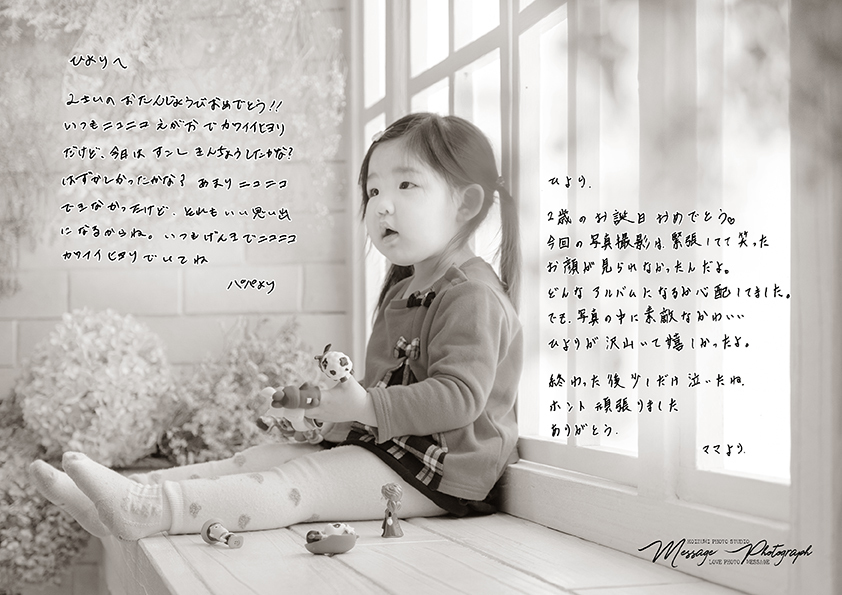 ひよりへ
2さいの おたんじょうびおめでとう!!
いつもニコニコ えがおで カワイイヒヨリ
だけど、今日は すこし きんちょうしたかな?
はずかしかったかな? あまり ニコニコ
できなかったけど、それも いい思い出
になるからね。いつもげんきでニコニコ
カワイイ ヒヨリ でいてね
パパより
ひより、
2歳のお誕生日おめでとう♡
今回の写真撮影は緊張してて笑った
お顔が見られなかったんだよ。
どんなアルバムになるか心配してました。
でも、写真の中に素敵なかわいい
ひよりが沢山いて嬉しかったよ。
終わった後少しだけ泣いたね。
ホント頑張りました
ありがとう。
ママより。
KOIZUMI PHOTO STUDIO
Message Photograph
LOVE PHOTO MESSAGE